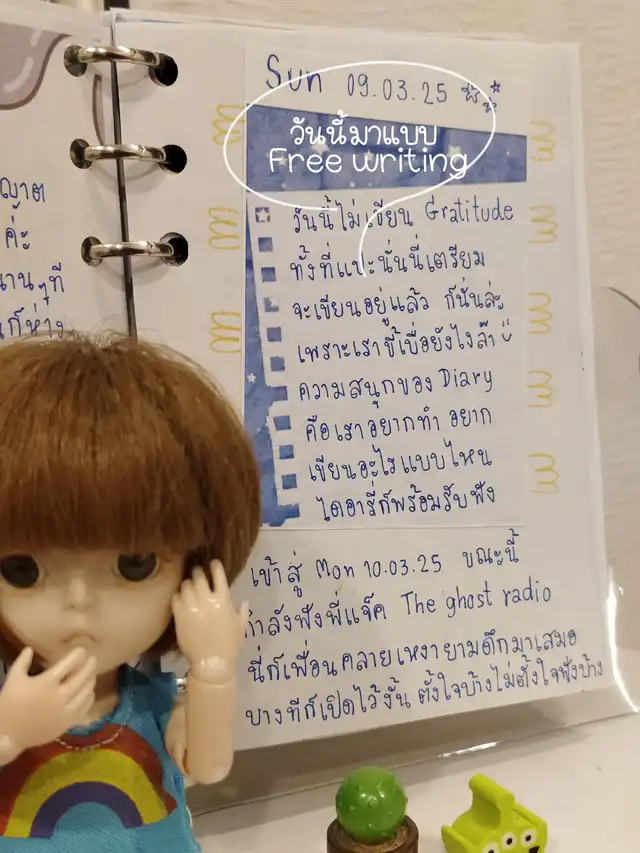 ญาต
ค่ะ
นานๆที
ก็ห่าง
Sun 09.03.25
วันนี้มาแบบ
Free writing
วันนี้ไม่เขียน Gratitude
ทั้งที่แปะนั่นนี่เตรียม
จะเขียนอยู่แล้ว ก็นั่นล่ะ
เพราะเราขี้เบื่อยังไงล๊า
ความสนุกของ Diary
คือเราอยากทำ อยาก
เขียนอะไรแบบไหน
ไดอารี่ก็พร้อมรับฟัง
เข้าสู่ Mon 10.03.25 ขณะนี้
กำลังฟังพี่แจ็ค The ghost radio
นี่ก็เพื่อนคลายเหงายามดึกมาเสมอ
บางทีก็เปิดไว้งั้น ตั้งใจบ้างไม่ตั้งใจฟังบ้าง